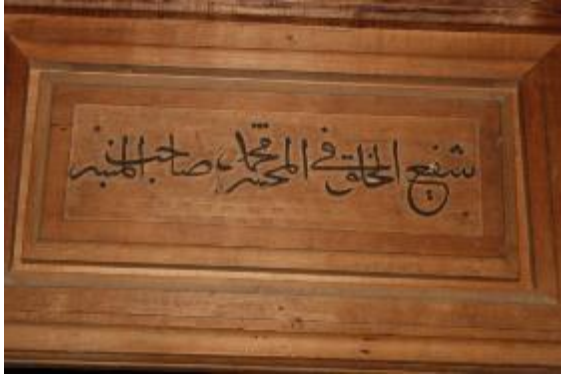 شفيع الخلق في المحشر محمد صاحب المنبر